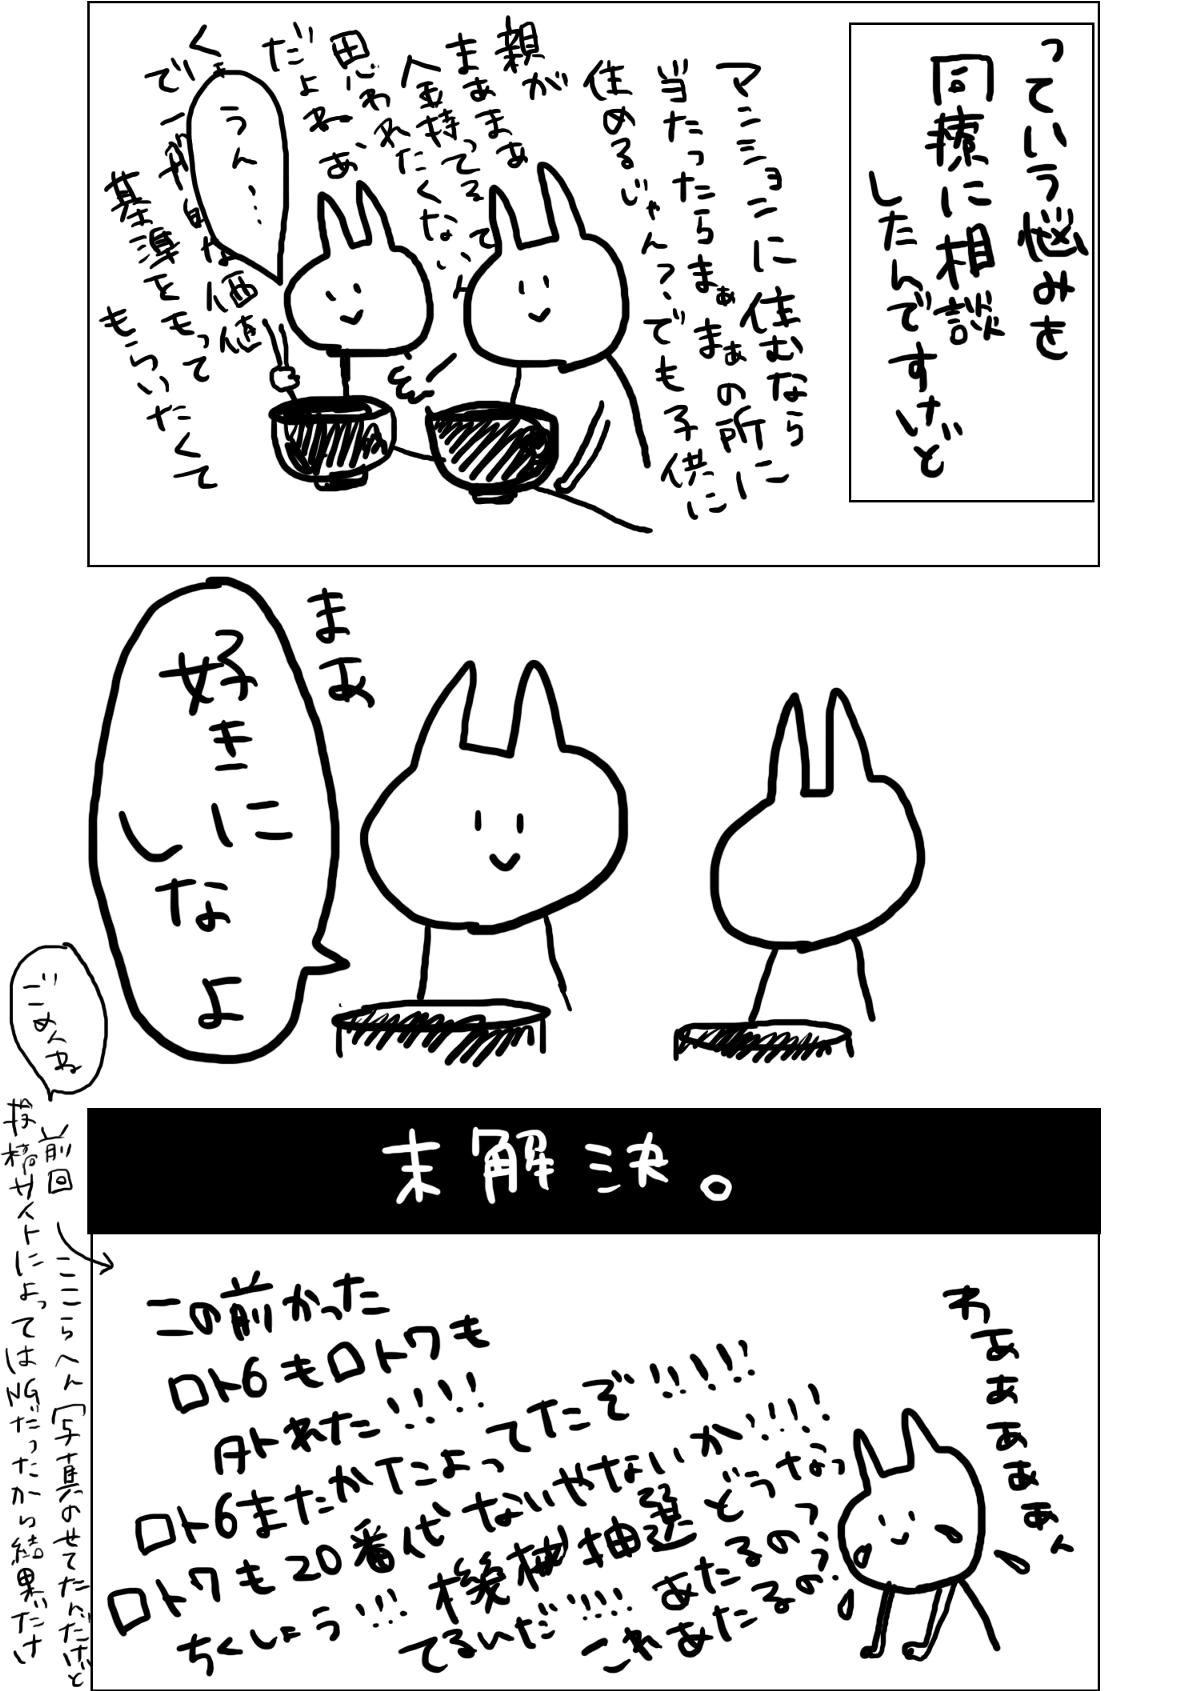 っていう悩みを
同僚に相談
したんですけど
マンションに住むなら
当たったらまぁまぁの所に
住めるじゃん？でも子供に
親が
まぁまぁ
金持ってるって
思われたくないん
だよねぇ
うん…
くぇ
で一般的な価値
基準をもって
もらいたくて
まぁ
好きに
しな
よ
ごめんね
末解決。
前回
ここらへん「写真のせてたんだけど
投稿サイトによってはNGだったから結果だけ
この前かった
ロト6もロト7も
外れた!!!!
ロト6またかたよってたぞ!!!!!
ロト7も20番代ないやないか!!!!
ちくしょう!!!機械抽選どうなっ
てるいだ!!!!あたるの?
これあたるの?
わああああぁん